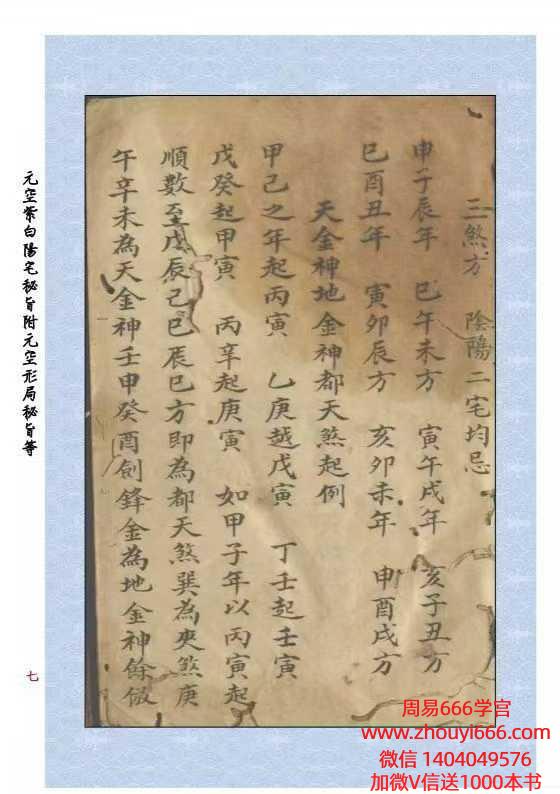 三煞方 陰陽二宅均忌
申子辰年 巳午未方 寅午戌年 亥子丑方
巳酉丑年 寅卯辰方 亥卯未年 申酉戌方
天金神地金神都天煞起例
甲己之年起丙寅 乙庚越戊寅 丁壬起壬寅
戊癸起甲寅 丙辛起庚寅 如甲子年以丙寅起
順數至戊辰己巳辰巳方即為都天煞巽為夾煞庚
午辛未為天金神壬申癸酉劍鋒金為地金神餘倣
元空紫白陽宅秘旨附元空形局秘旨等
七
周易666学宫
www.zhouyi666.com
微信 1404049576
加微V信送1000本书